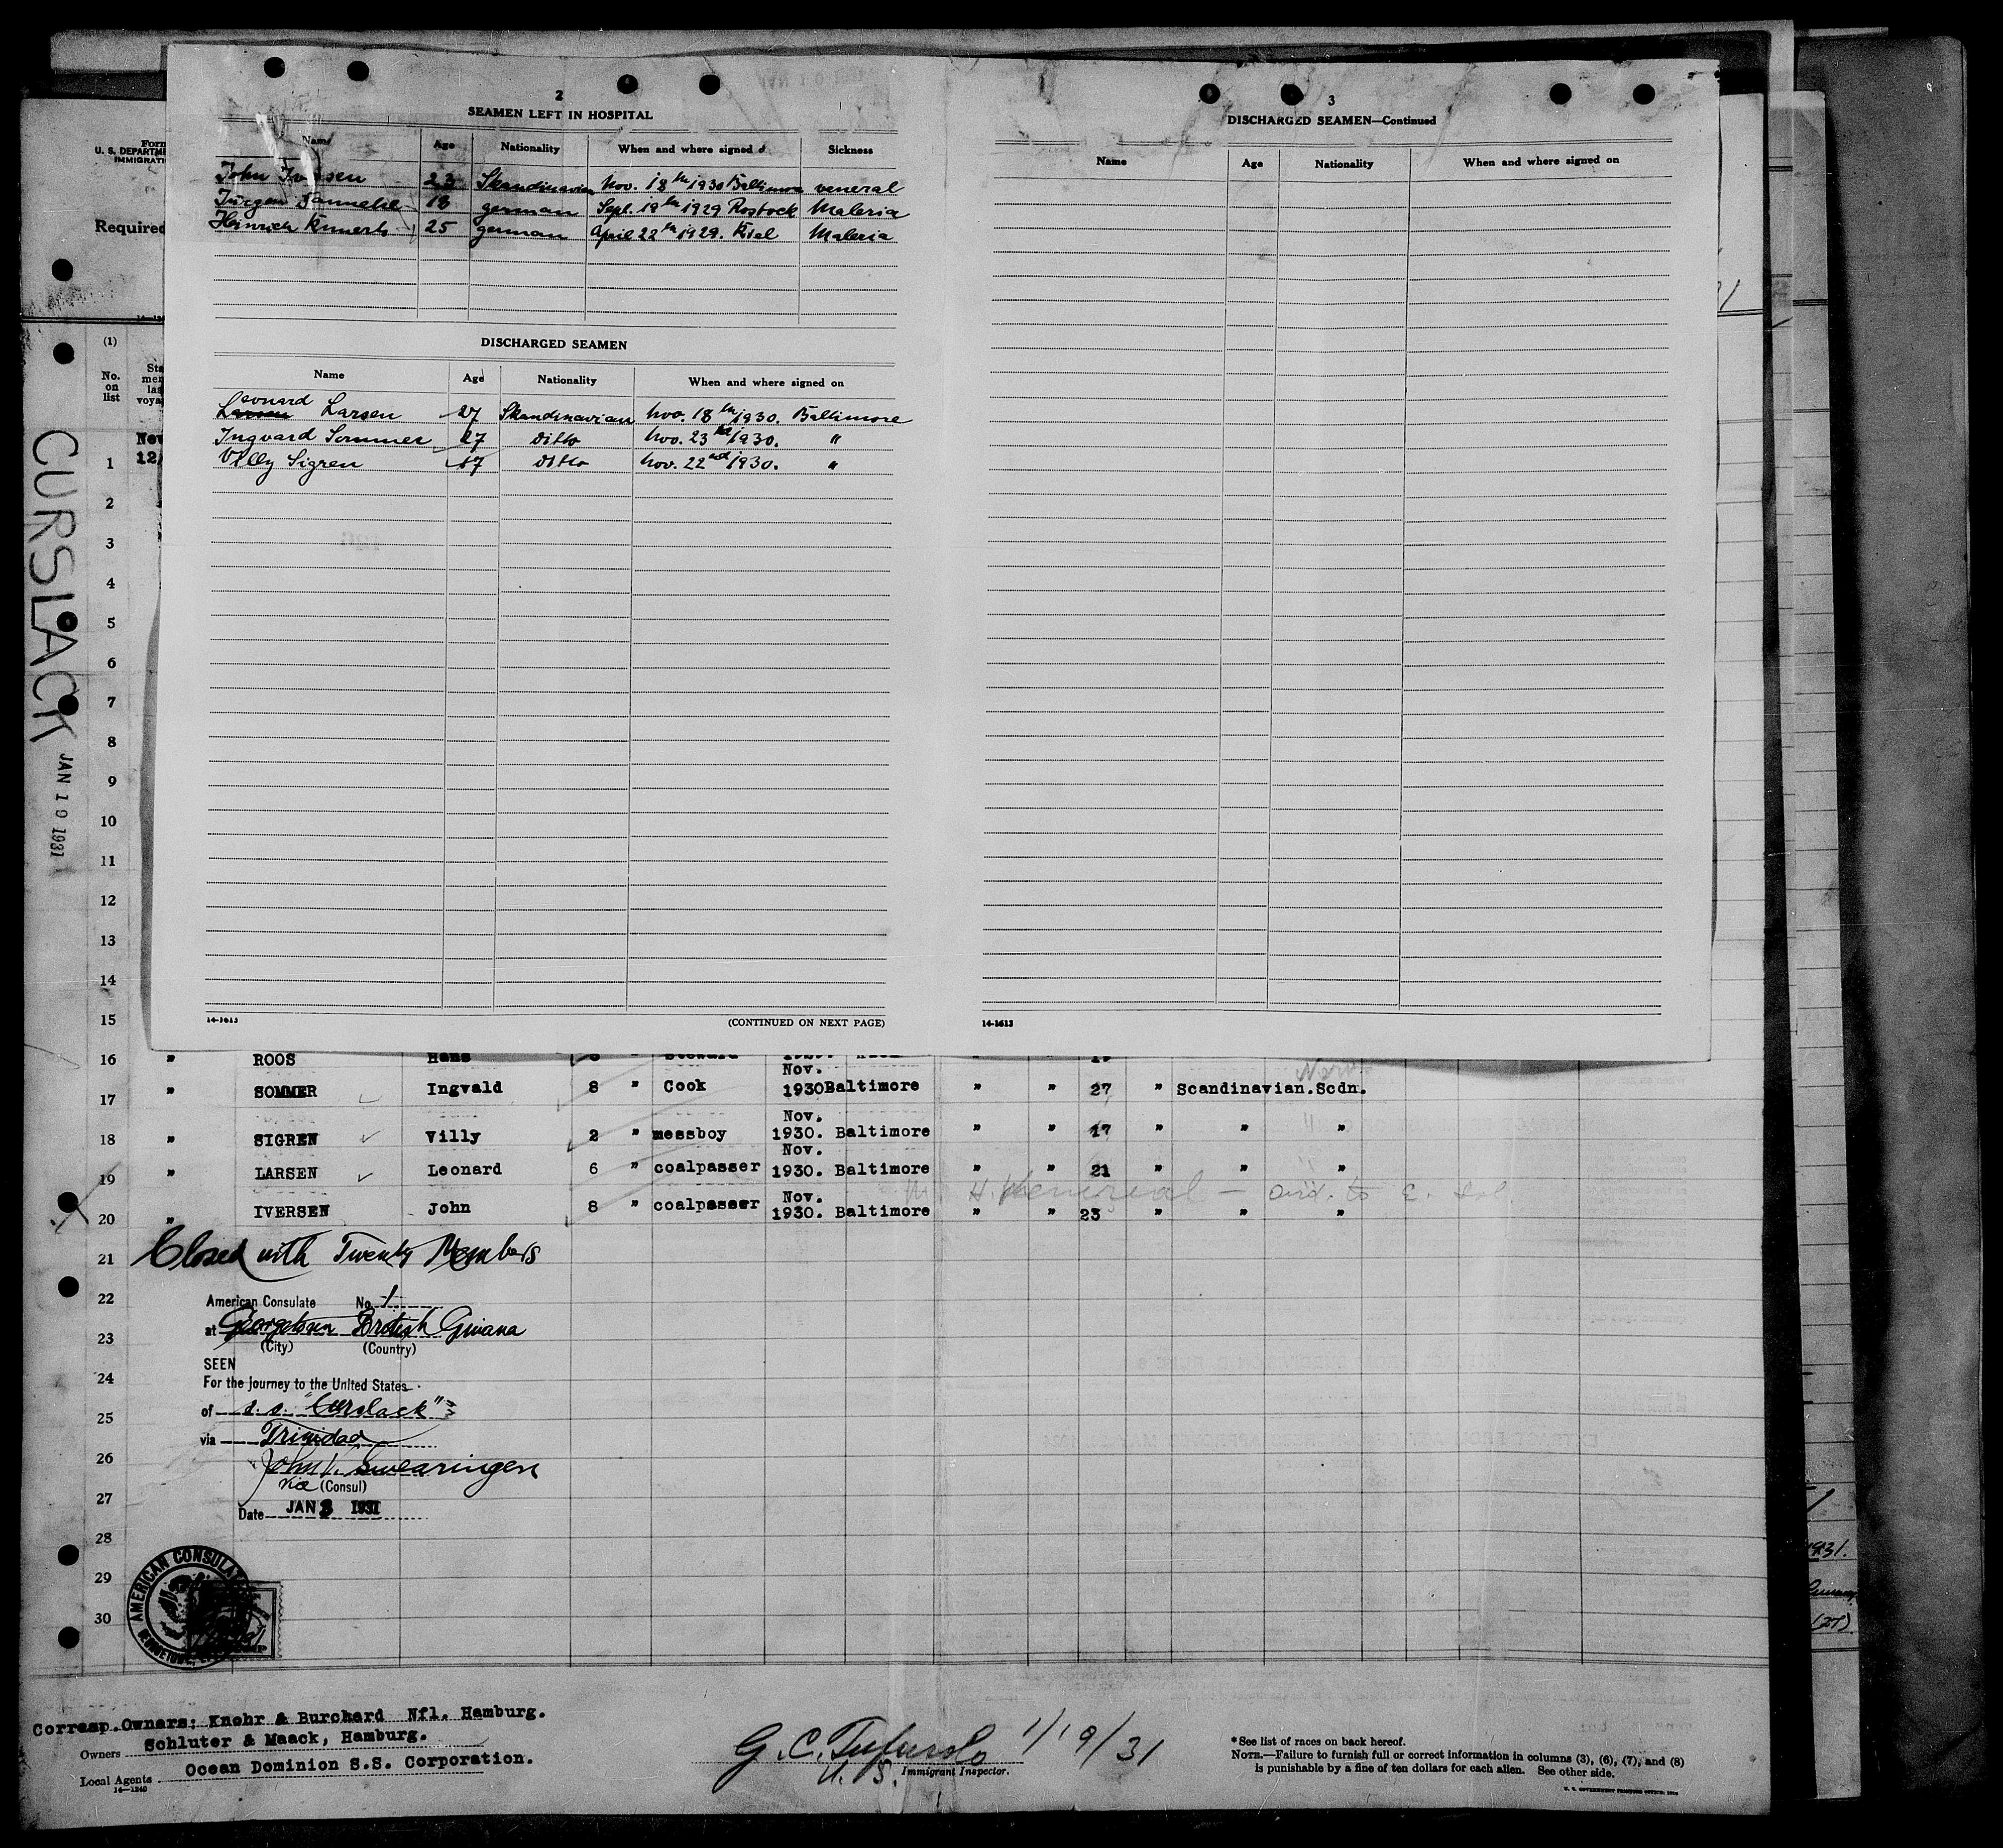 2
SEAMEN LEFT IN HOSPITAL
Name Age Nationality When and where signed Sickness
John Iversen 23 Skandinavian Nov. 18th 1930 Baltimore veneral
18 german Sept. 19th 1929 Rostock Maleria
Heinrich 25 german April 22th 1929. Kiel Maleria
DISCHARGED SEAMEN
Name Age Nationality When and where signed on
Leonard
Larsen Larsen 27 Skandinavian Nov. 18th 1930. Baltimore
Ingvard Sommer 27 Ditto Nov. 23 1930. "
Villy Sigren 17 Ditto Nov. 22nd 1930. "
14-1613 (CONTINUED ON NEXT PAGE)
3
DISCHARGED SEAMEN—Continued
Name Age Nationality When and where signed on
14-1613
Form
U. S. DEPARTME
IMMIGRATI
Required
(1)
No.
on
list
Sta
men
las
voya
Nov
12/
CURSLACK JAN 19 1931
1
2
3
4
5
6
7
8
9
10
11
12
13
14
15
16 " ROOS Hans " Steward
17 " SOMMER Ingvald 8 " Cook Nov. 1930 Baltimore " " 27 " Scandinavian. Scdn.
18 " SIGREN Villy 2 " messboy Nov. 1930. Baltimore " " 17 " " "
19 " LARSEN Leonard 6 " coalpasser Nov. 1930. Baltimore " " 21 " " "
20 " IVERSEN John 8 " coalpasser Nov. 1930. Baltimore " " 23 " " "
21 Closed with Twenty Members
22 American Consulate No. 1
23 at Georgetown British Guiana
(City) (Country)
SEEN
24 For the journey to the United States
25 of s.s. "Curslack"
via Trinidad
26 John J. Swearingen
Vice (Consul)
27 Date JAN 3 1931
28
29
30
AMERICAN CONSULA
Corresp.Owners: Knohr & Burchard Nfl. Hamburg.
Owners Schluter & Maack, Hamburg.
Local Agents Ocean Dominion S.S. Corporation.
14—1240
G. C. 1/19/31
U. S. Immigrant Inspector.
*See list of races on back hereof.
NOTE.—Failure to furnish full or correct information in columns (3), (6), (7), and (8)
is punishable by a fine of ten dollars for each alien. See other side.